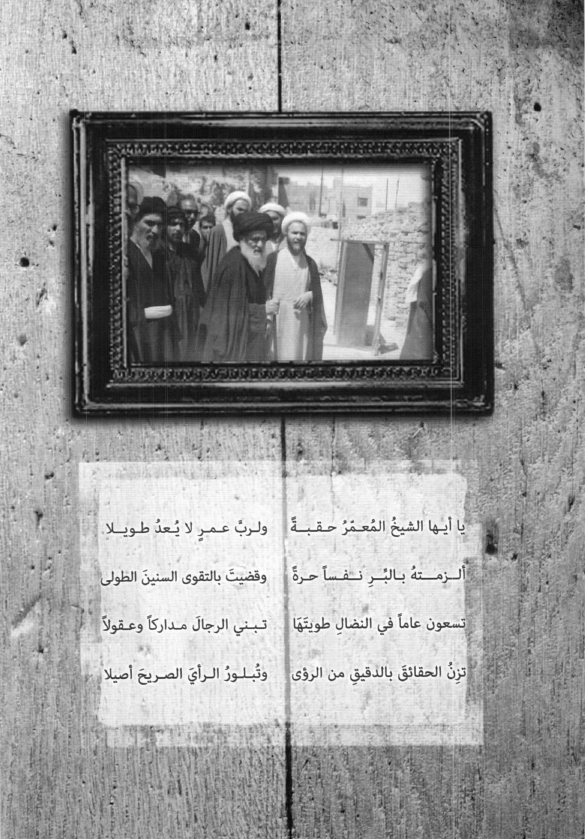 يا أيـها الشيخُ المُعـمّرُ حـقـبـةً ولـربَّ عـمـرٍ لا يُـعدُ طـويــلا
ألـزمــتهُ بـالبِّـرِ نـفـساً حـرةً وقضيتَ بالتقوى السنينَ الطولى
تسعون عاماً في النضالِ طويتَهَا تـبـني الرجالَ مـداركاً وعـقولاً
تزِنُ الحقائقَ بالدقيقِ من الرؤى وتُبـلـورُ الـرأيَ الصريحَ أصيلا